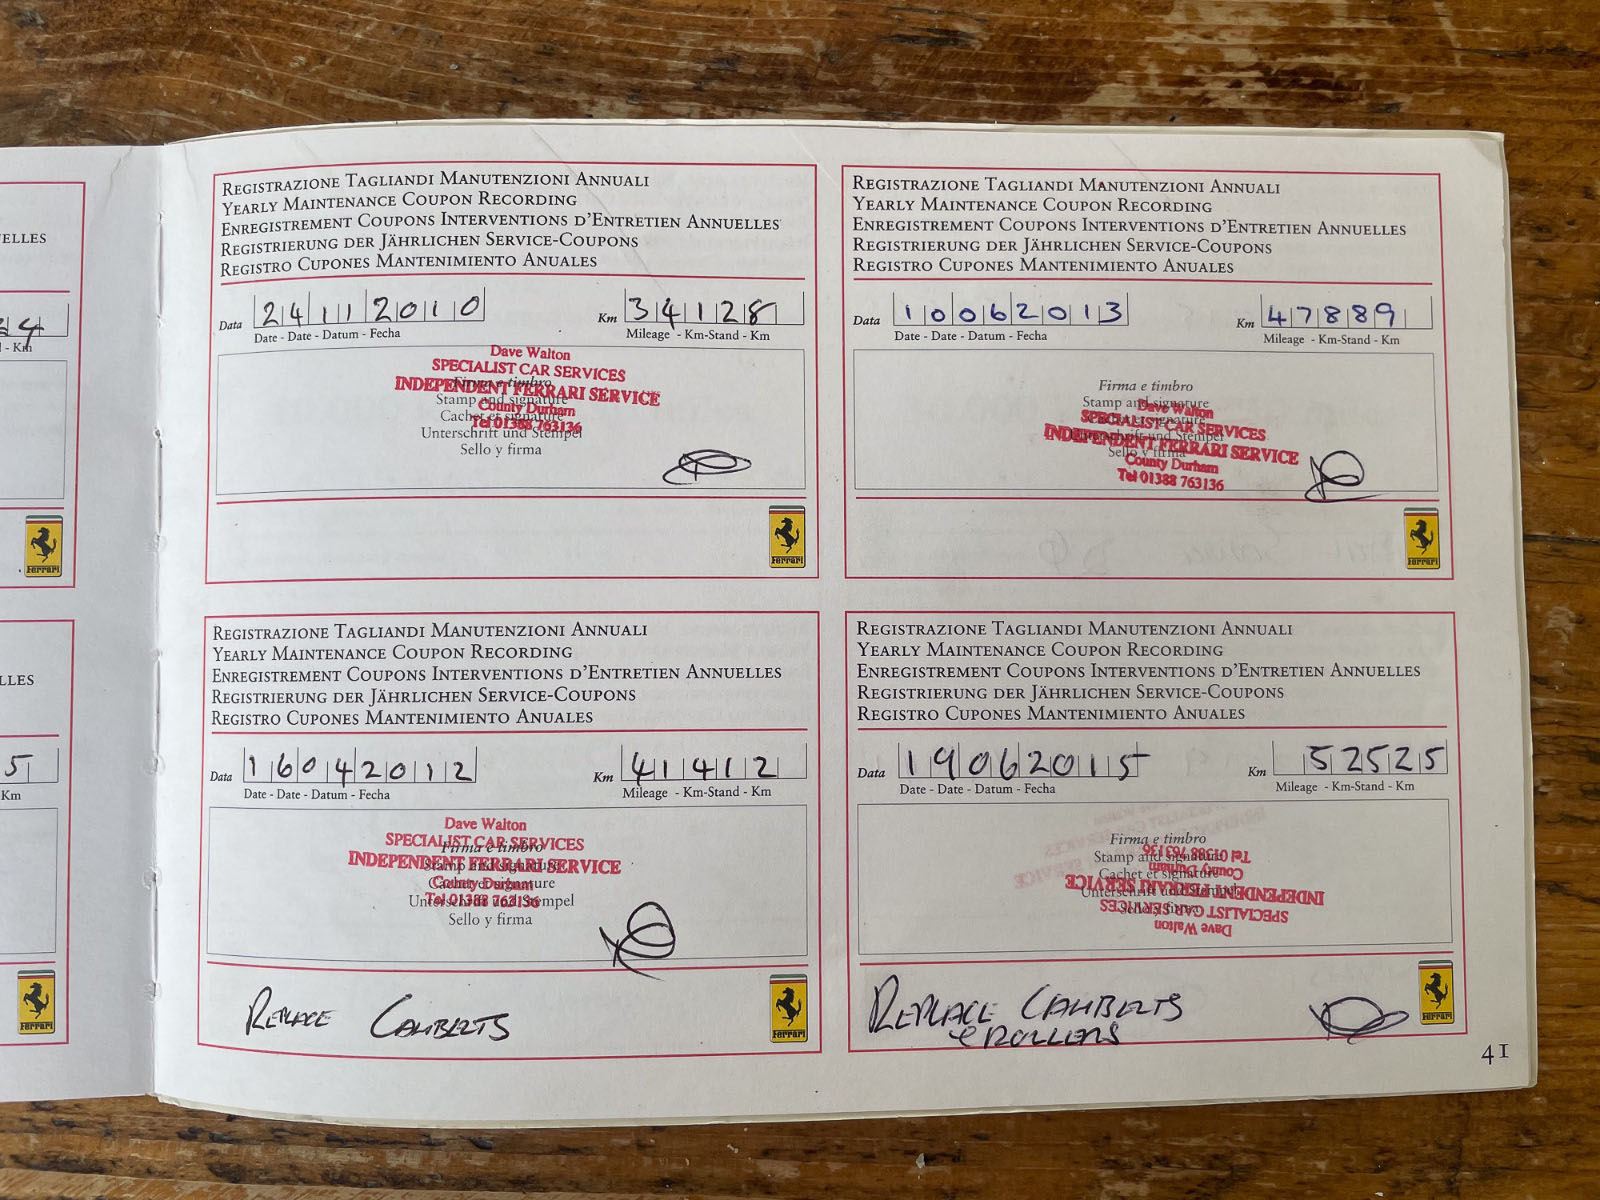 ELLES
24
- Km
Ferrari
LLES
5
Km
Ferrari
REGISTRAZIONE TAGLIANDI MANUTENZIONI ANNUALI
YEARLY MAINTENANCE COUPON RECORDING
ENREGISTREMENT COUPONS INTERVENTIONS D'ENTRETIEN ANNUELLES
REGISTRIERUNG DER JÄHRLICHEN SERVICE-COUPONS
REGISTRO CUPONES MANTENIMIENTO ANUALES
Data 24112010 Km 34128
Date - Date - Datum - Fecha Mileage - Km-Stand - Km
Dave Walton
SPECIALIST CAR SERVICES
INDEPENDENT FERRARI SERVICE
County Durham
Tel 01388 763136
Firma e timbro
Stamp and signature
Cachet et signature
Unterschrift und Stempel
Sello y firma
Ferrari
REGISTRAZIONE TAGLIANDI MANUTENZIONI ANNUALI
YEARLY MAINTENANCE COUPON RECORDING
ENREGISTREMENT COUPONS INTERVENTIONS D'ENTRETIEN ANNUELLES
REGISTRIERUNG DER JÄHRLICHEN SERVICE-COUPONS
REGISTRO CUPONES MANTENIMIENTO ANUALES
Data 10062013 Km 47889
Date - Date - Datum - Fecha Mileage - Km-Stand - Km
Firma e timbro
Stamp and signature
Cachet et signature
Unterschrift und Stempel
Sello y firma
Dave Walton
SPECIALIST CAR SERVICES
INDEPENDENT FERRARI SERVICE
County Durham
Tel 01388 763136
Ferrari
REGISTRAZIONE TAGLIANDI MANUTENZIONI ANNUALI
YEARLY MAINTENANCE COUPON RECORDING
ENREGISTREMENT COUPONS INTERVENTIONS D'ENTRETIEN ANNUELLES
REGISTRIERUNG DER JÄHRLICHEN SERVICE-COUPONS
REGISTRO CUPONES MANTENIMIENTO ANUALES
Data 16042012 Km 41412
Date - Date - Datum - Fecha Mileage - Km-Stand - Km
Dave Walton
SPECIALIST CAR SERVICES
INDEPENDENT FERRARI SERVICE
County Durham
Tel 01388 763136
Firma e timbro
Stamp and signature
Cachet et signature
Unterschrift und Stempel
Sello y firma
REPLACE CAMBELTS
Ferrari
REGISTRAZIONE TAGLIANDI MANUTENZIONI ANNUALI
YEARLY MAINTENANCE COUPON RECORDING
ENREGISTREMENT COUPONS INTERVENTIONS D'ENTRETIEN ANNUELLES
REGISTRIERUNG DER JÄHRLICHEN SERVICE-COUPONS
REGISTRO CUPONES MANTENIMIENTO ANUALES
Data 19062015 Km 52525
Date - Date - Datum - Fecha Mileage - Km-Stand - Km
Firma e timbro
Stamp and signature
Cachet et signature
Unterschrift und Stempel
Sello y firma
Dave Walton
SPECIALIST CAR SERVICES
INDEPENDENT FERRARI SERVICE
County Durham
Tel 01388 763136
REPLACE CAMBELTS
& ROLLERS
Ferrari
41